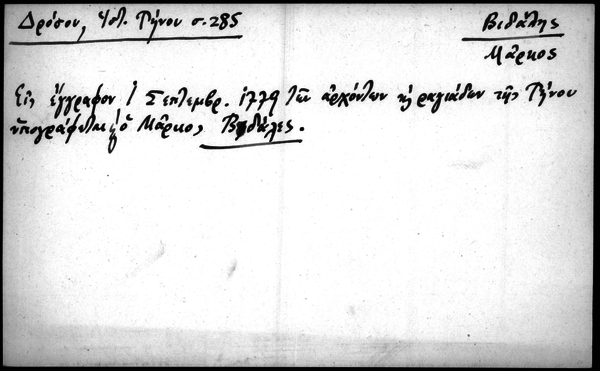 Δρόσου, Ἱστ. Τήνου σ. 285
Βιδάλης
Μᾶρκος
Εἰς ἔγγραφον 1 Σεπτεμβρ. 1779 τῶν ἀρχόντων κ ραγιάδων τῆς Τήνου
ὑπογράφεται κ ὁ Μᾶρκος Βιδάλες.